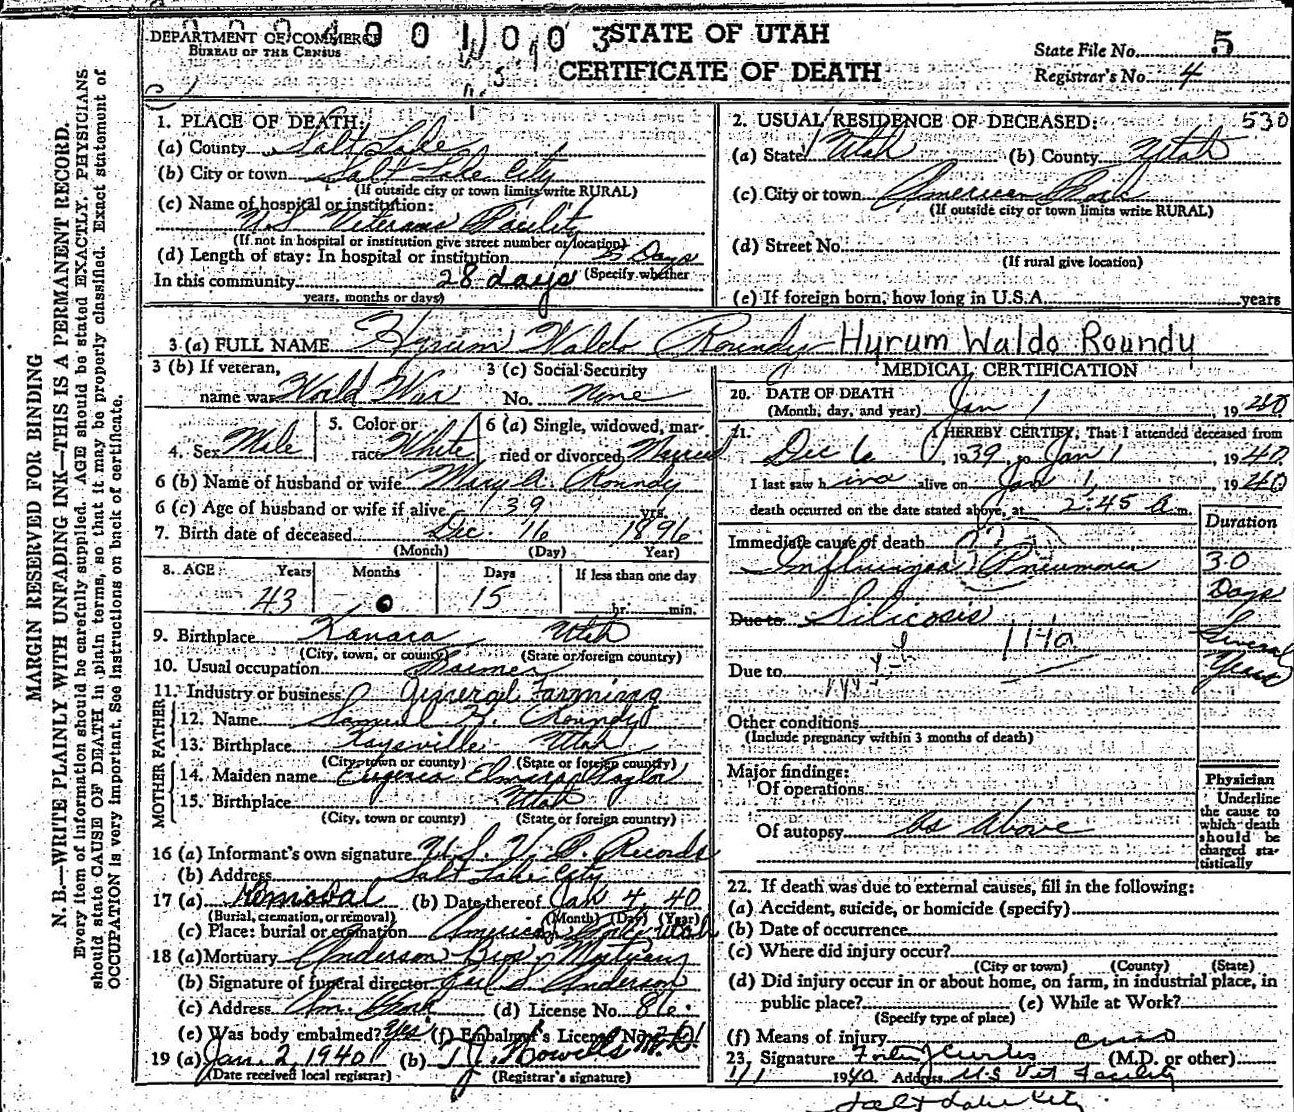 DEPARTMENT OF COMMERCE
BUREAU OF THE CENSUS
STATE OF UTAH
CERTIFICATE OF DEATH
State File No. 5
Registrar's No. 4
MARGIN RESERVED FOR BINDING
N. B.—WRITE PLAINLY WITH UNFADING INK—THIS IS A PERMANENT RECORD.
Every item of information should be carefully supplied. AGE should be stated EXACTLY. PHYSICIANS
should state CAUSE OF DEATH in plain terms, so that it may be properly classified. Exact statement of
OCCUPATION is very important. See instructions on back of certificate.
1. PLACE OF DEATH:
(a) County Salt Lake
(b) City or town Salt Lake City
(If outside city or town limits write RURAL)
(c) Name of hospital or institution:
U.S. Veterans Facility
(If not in hospital or institution give street number or location)
(d) Length of stay: In hospital or institution Days
(Specify whether
In this community 28 days
years, months or days)
2. USUAL RESIDENCE OF DECEASED: 530
(a) State Utah (b) County Utah
(c) City or town American Fork
(If outside city or town limits write RURAL)
(d) Street No.
(If rural give location)
(e) If foreign born, how long in U.S.A. years
3 (a) FULL NAME Hyrum Waldo Roundy Hyrum Waldo Roundy
3 (b) If veteran,
name war World War
3 (c) Social Security
No. None
4. Sex Male
5. Color or
race White
6 (a) Single, widowed, mar-
ried or divorced Married
6 (b) Name of husband or wife Mary A. Roundy
6 (c) Age of husband or wife if alive 39 yrs.
7. Birth date of deceased Dec. 16 1896
(Month) (Day) Year)
8. AGE Years Months Days If less than one day
43 0 15 hr. min.
9. Birthplace Kanara Utah
(City, town, or county) (State or foreign country)
10. Usual occupation Farmer
11. Industry or business General Farming
FATHER
12. Name Samuel Roundy
13. Birthplace Kaysville Utah
(City, town or county) (State or foreign country)
MOTHER
14. Maiden name Eugenia Elmira Naylor
15. Birthplace Utah
(City, town or county) (State or foreign country)
16 (a) Informant's own signature U.S. V. Records
(b) Address Salt Lake City
17 (a) Removal (b) Date thereof Jan 4, 40
(Burial, cremation, or removal) (Month) (Day) (Year)
(c) Place: burial or cremation American Fork Utah
18 (a) Mortuary Anderson Bros. Mortuary
(b) Signature of funeral director Anderson
(c) Address Am. Fork (d) License No. 86
(e) Was body embalmed? Yes (f) Embalmer's License No.
19 (a) Jan. 2, 1940 (b) Howells M.D.
(Date received local registrar) (Registrar's signature)
MEDICAL CERTIFICATION
20. DATE OF DEATH
(Month, day, and year) Jan 1, 1940
21. I HEREBY CERTIFY, That I attended deceased from
Dec 6, 1939, to Jan 1, 1940
I last saw him alive on Jan 1, 1940
death occurred on the date stated above, at 2:45 a.m.
Duration
Immediate cause of death
Influenza Pneumonia 30
Days
Due to Silicosis Several
Years
Due to
Other conditions
(Include pregnancy within 3 months of death)
Major findings:
Of operations
Of autopsy As Above
Physician
Underline
the cause to
which death
should be
charged sta-
tistically
22. If death was due to external causes, fill in the following:
(a) Accident, suicide, or homicide (specify)
(b) Date of occurrence
(c) Where did injury occur?
(City or town) (County) (State)
(d) Did injury occur in or about home, on farm, in industrial place, in
public place? (e) While at Work?
(Specify type of place)
(f) Means of injury
23. Signature Curtis (M.D. or other)
1/1 1940 Address U.S Vet Facility
Salt Lake City